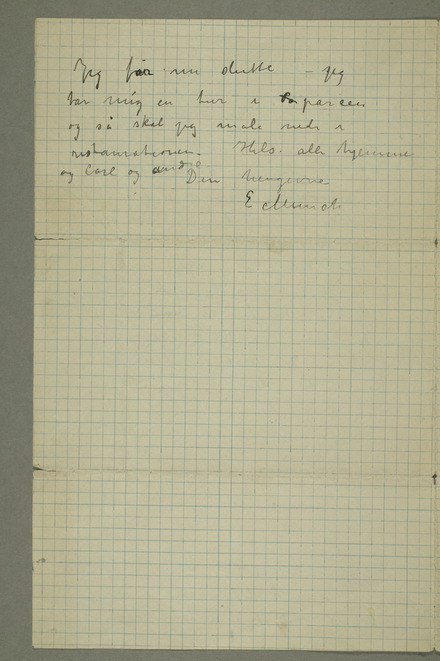 Jeg får nu slutte – jeg
tar mig en tur i parken
og så skal jeg male nede i
restaurationen. Hils. alle hjemme
og Carl og andre
Din hengivne
E Munch